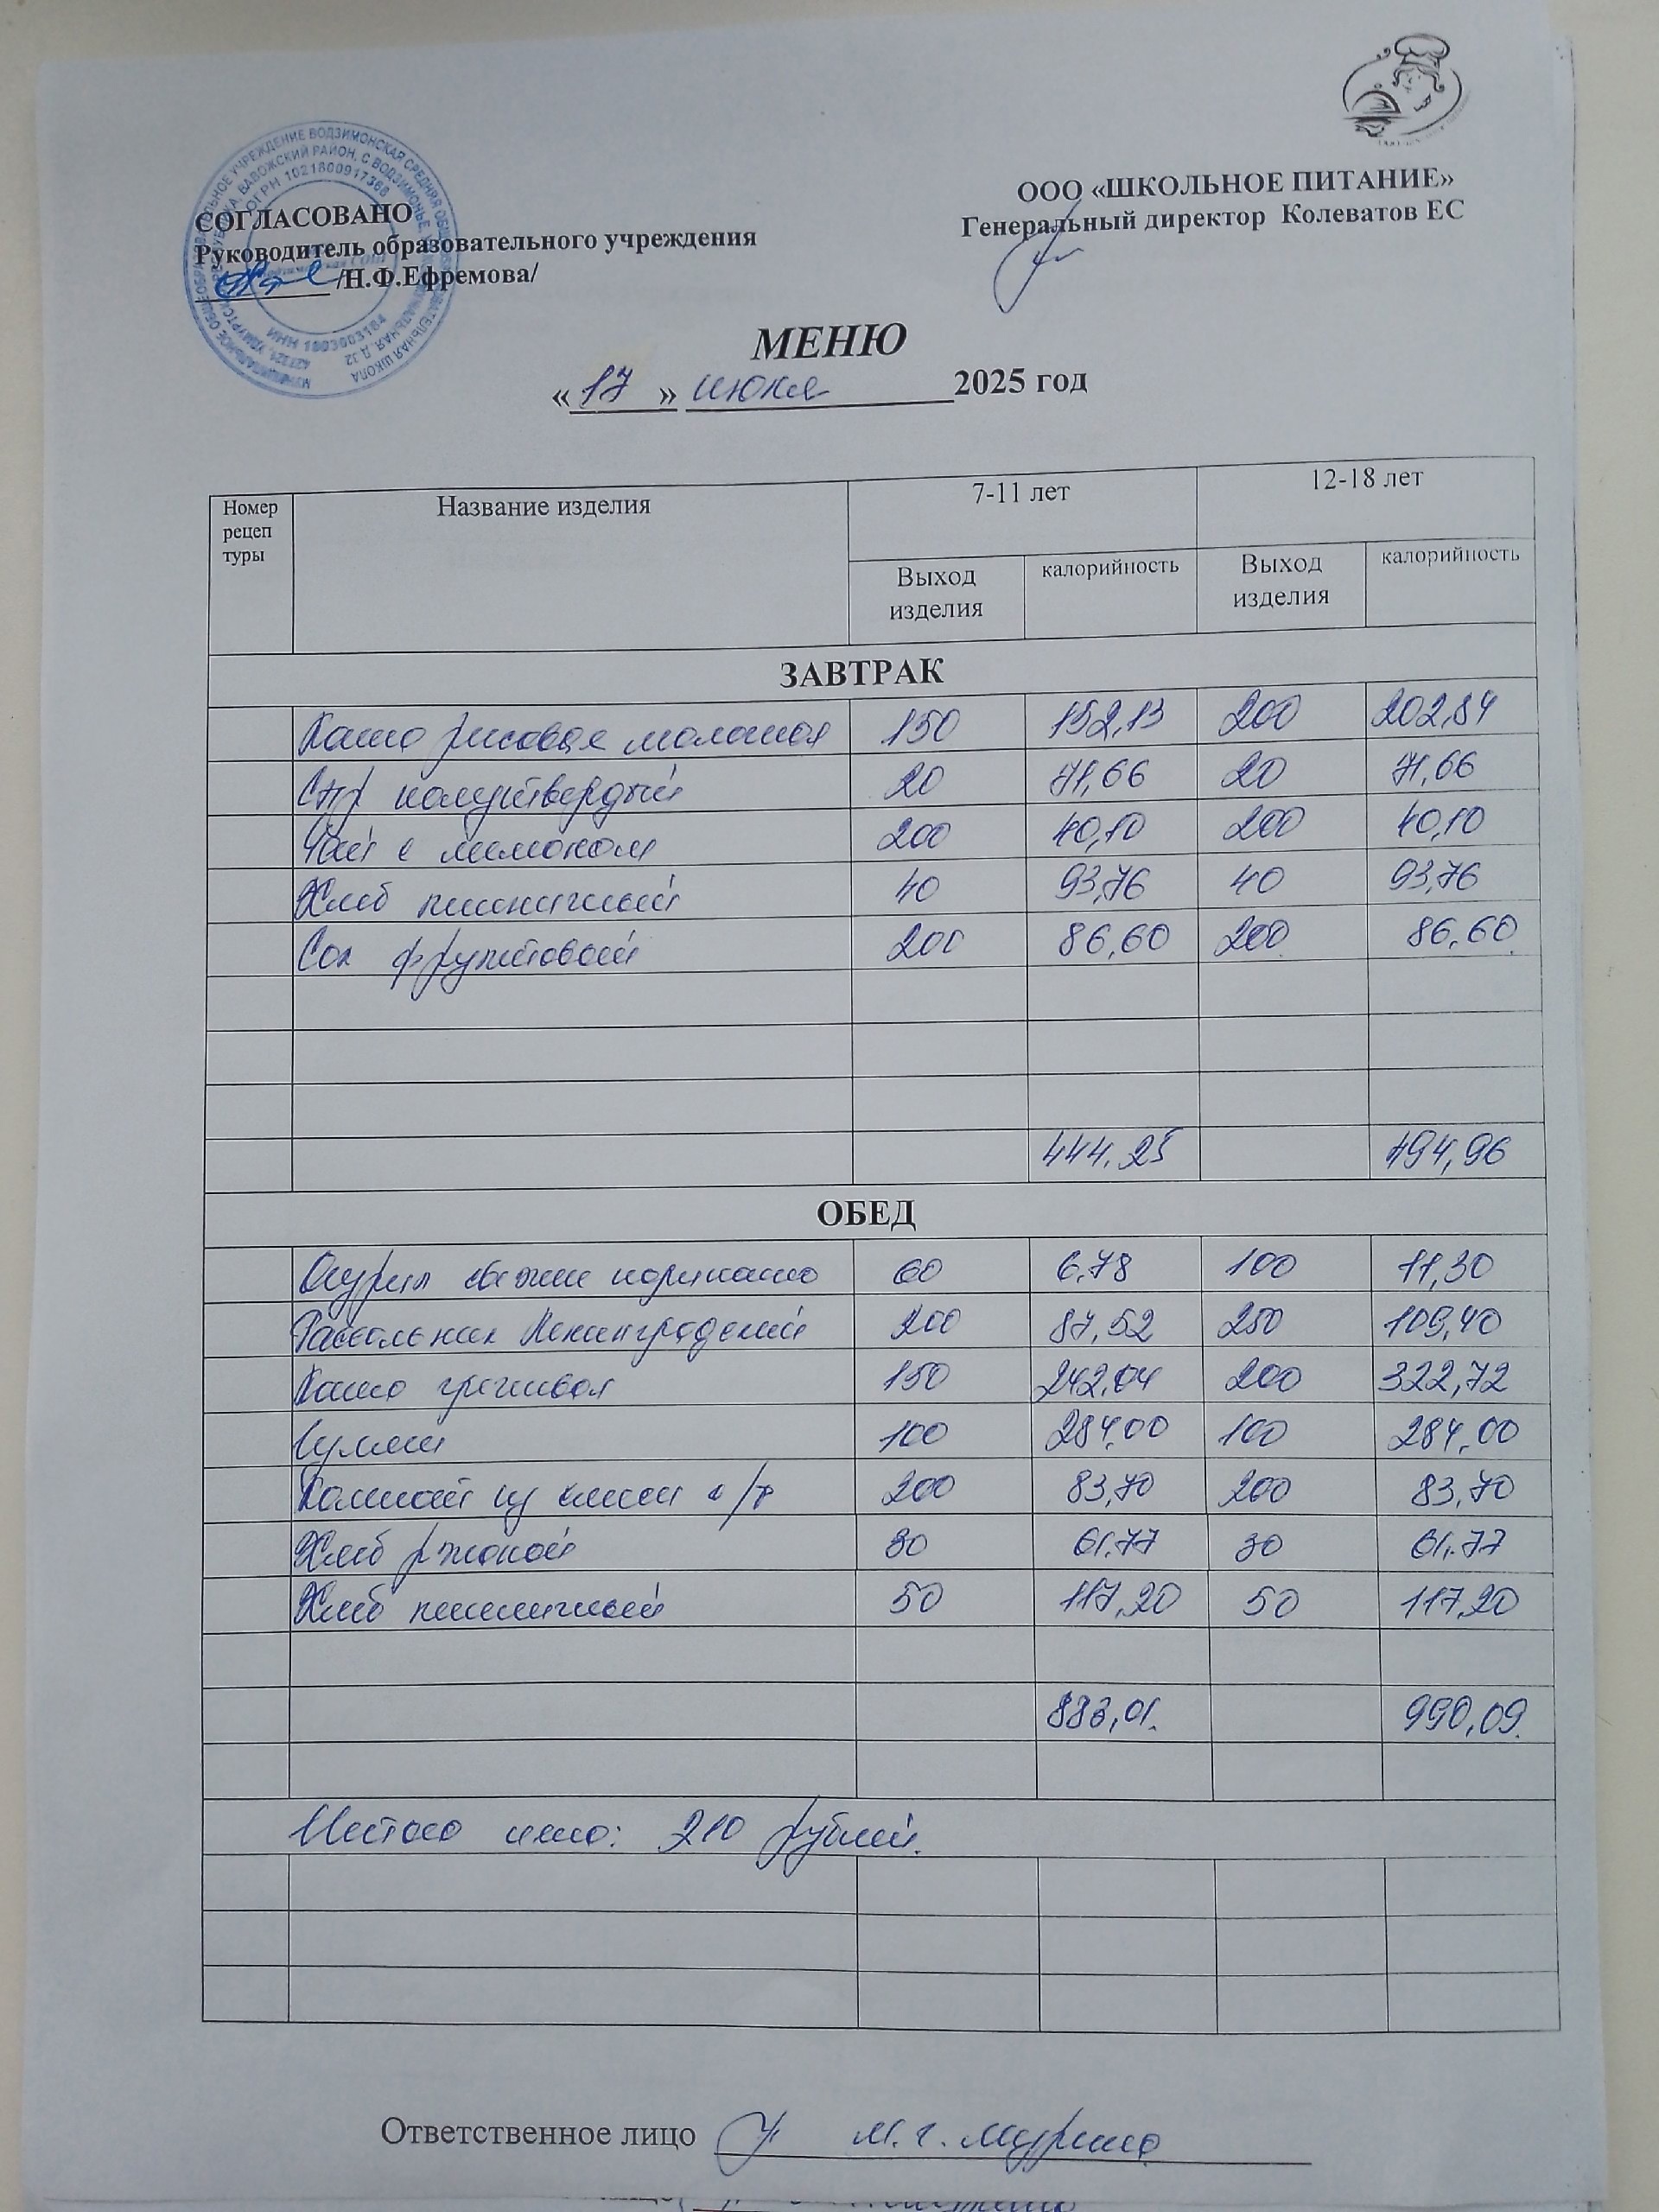 МУНИЦИПАЛЬНОЕ ОБЩЕОБРАЗОВАТЕЛЬНОЕ УЧРЕЖДЕНИЕ ВОДЗИМОНСКАЯ СРЕДНЯЯ ОБЩЕОБРАЗОВАТЕЛЬНАЯ ШКОЛА
ОГРН 1021800917368
ООО «ШКОЛЬНОЕ ПИТАНИЕ»
Генеральный директор Колеватов ЕС
СОГЛАСОВАНО
Руководитель образовательного учреждения
/Н.Ф.Ефремова/
МЕНЮ
« 17 » июля 2025 год
Номер рецеп туры Название изделия 7-11 лет 12-18 лет
Выход изделия калорийность Выход изделия калорийность
ЗАВТРАК
Каша рисовая молочная 150 152,13 200 202,84
Сыр полутвердый 20 71,66 20 71,66
Чай с лимоном 200 40,10 200 40,10
Хлеб пшеничный 40 93,76 40 93,76
Сок фруктовый 200 86,60 200 86,60
444,25 494,96
ОБЕД
Огурец свежий порционно 60 6,78 100 11,30
Рассольник Ленинградский 200 87,52 250 109,40
Каша гречневая 150 242,04 200 322,72
Супы 100 284,00 100 284,00
Компот из смеси с/ф 200 83,70 200 83,70
Хлеб ржаной 30 61,77 30 61,77
Хлеб пшеничный 50 117,20 50 117,20
883,01. 990,09.
210 рублей.
Ответственное лицо